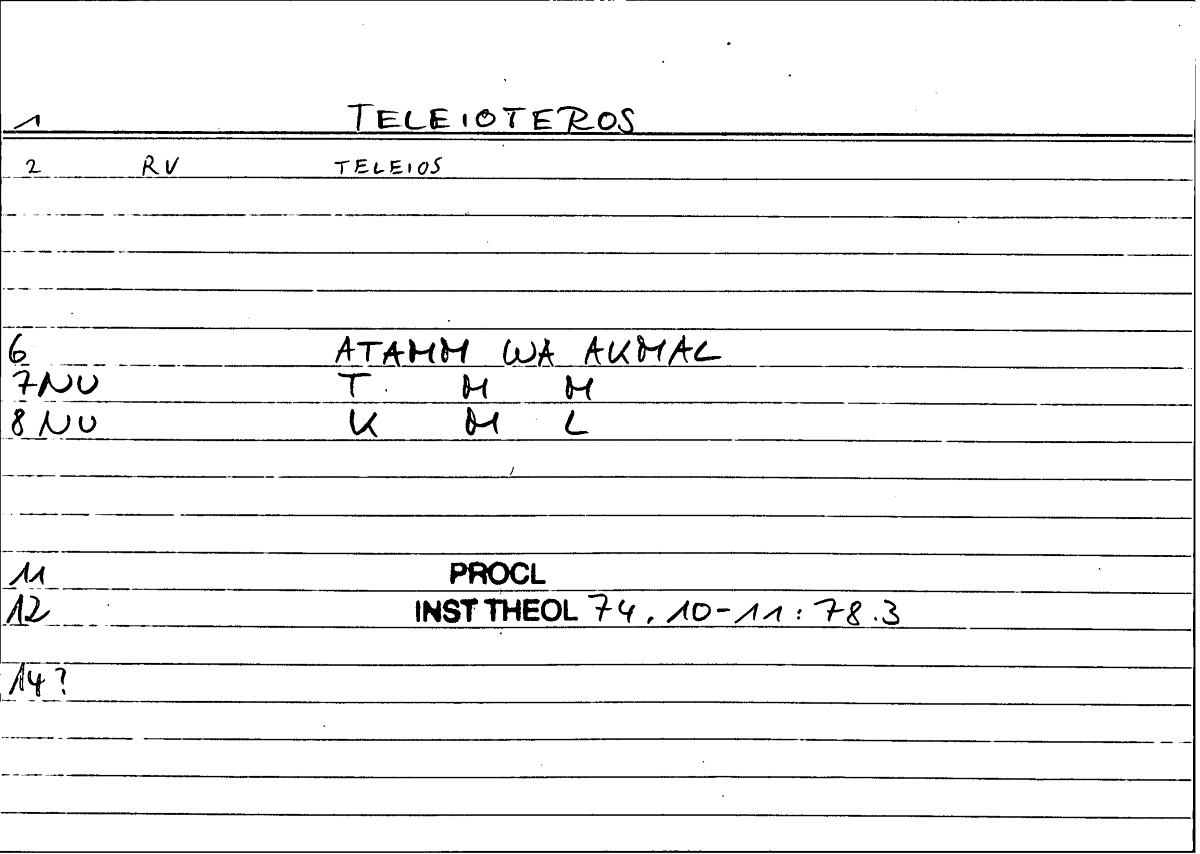 1 TELEIOTEROS
2 RV TELEIOS
6 ATAMM WA AKMAL
7 NU T M M
8 NU K M L
11 PROCL
12 INST THEOL 74.10-11:78.3
14?